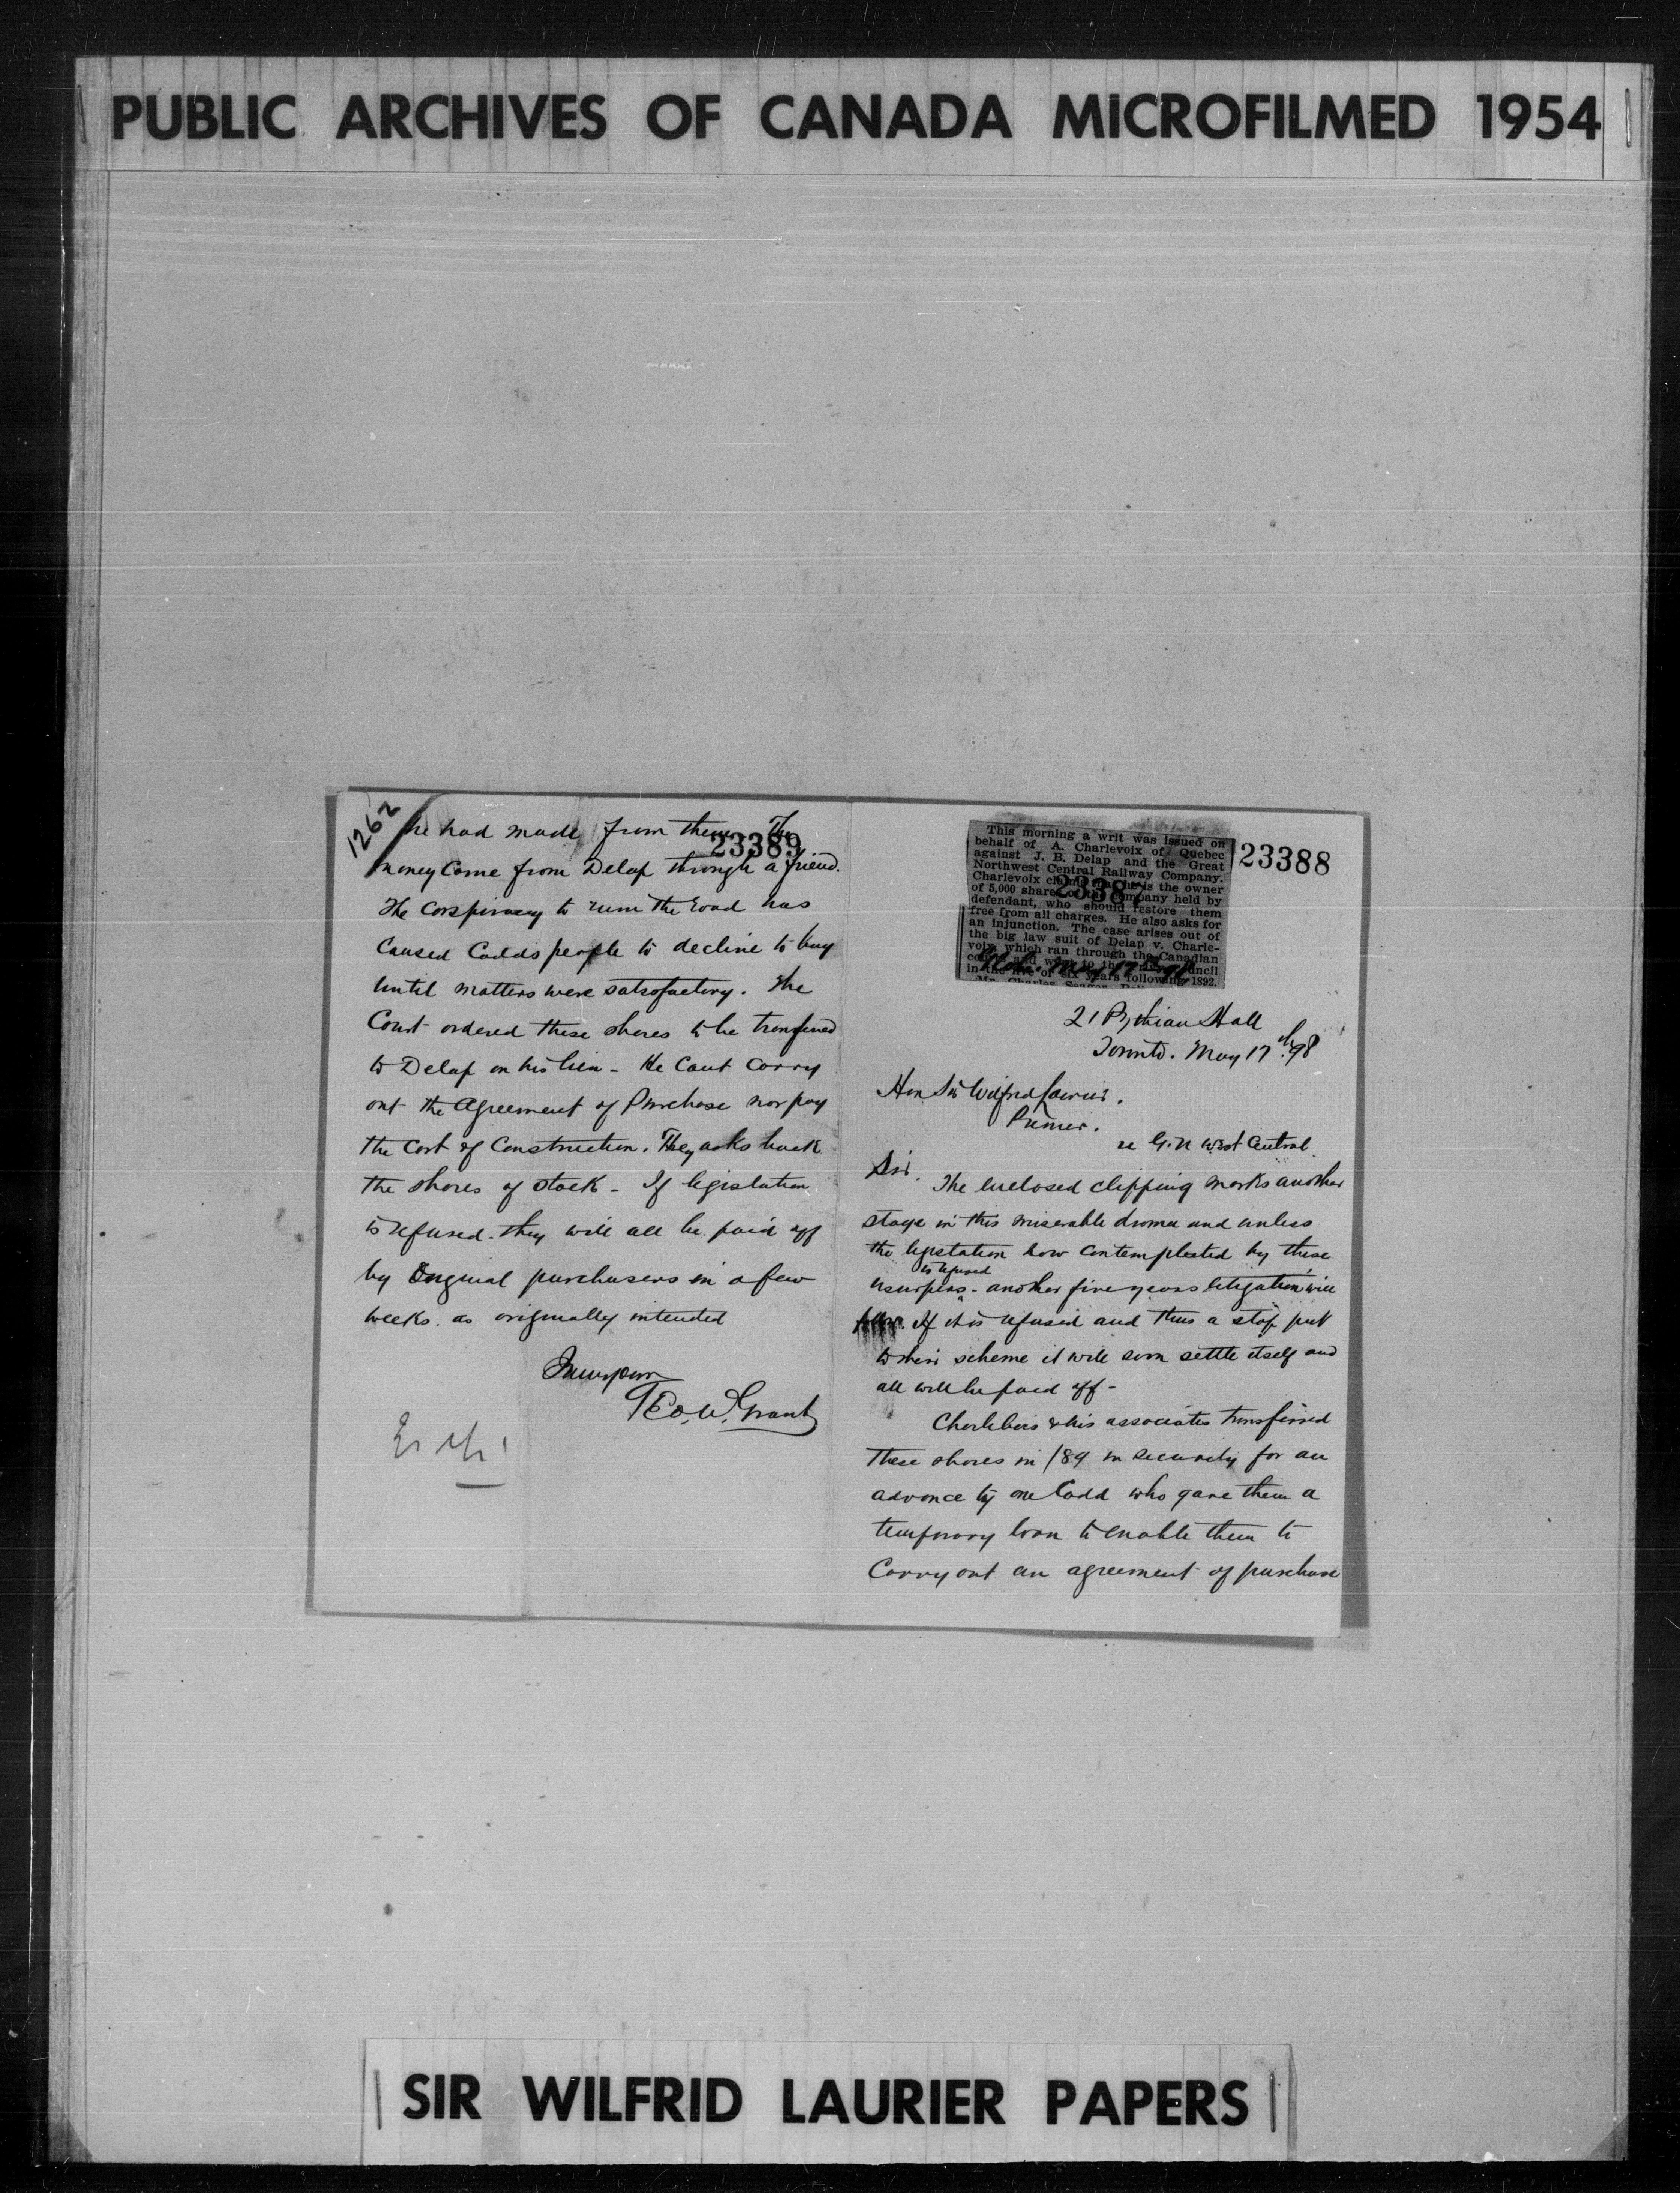 PUBLIC ARCHIVES OF CANADA MICROFILMED 1954
1262
he had made from them. The
23389
money Come from Delap through a friend.
The Conspiracy to ruin the road has
Caused Codds people to decline to buy
until matters were satisfactory. The
Court ordered these shares to be transferred
to Delap on his lien - He Cant Carry
out the Agreement of Purchase nor pay
the Cost of Construction. They asks back
the shares of stock - If legislation
is refused - they will all be paid off
by Original purchasers in a few
weeks. as originally intended
Geo. W. Grant
This morning a writ was issued on
behalf of A. Charlevoix of Quebec
against J. B. Delap and the Great
Northwest Central Railway Company.
Charlevoix is the owner
of 5,000 shares company held by
defendant, who should restore them
free from all charges. He also asks for
an injunction. The case arises out of
the big law suit of Delap v. Charle-
voix, which ran through the Canadian
and to the
in the of six years following 1892.
Mr. Charles Seager
23387
May 17th 98
23388
21 Pythian Hall
Toronto. May 17th 98
Hon Sir Wilfrid Laurier.
Premier.
re G. N West Central
Sir.
The enclosed clipping marks another
stage in this miserable drama and unless
the legislation now contemplated by these
usurpers is refused - another five years litigation will
follow. If it is refused and thus a stop put
to their scheme it will soon settle itself and
all will be paid off -
Charlebois & his associates transferred
these shares in /89 in security for an
advance by one Codd who gave them a
temporary loan to enable them to
Carry out an agreement of purchase
SIR WILFRID LAURIER PAPERS